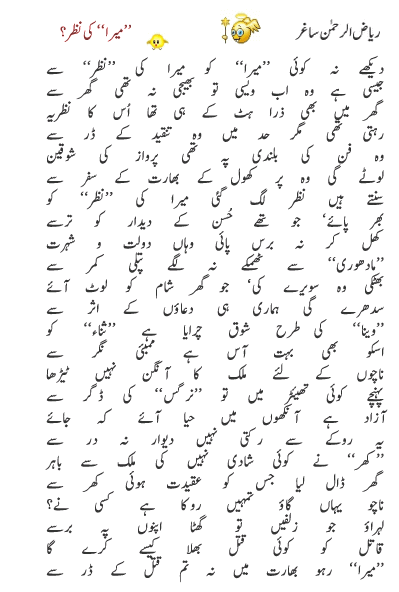 ریاض الرحمٰن ساغر
’’میرا‘‘ کی نظر؟
دیکھے نہ کوئی ’’میرا‘‘ کو میرا کی ’’نظر‘‘ سے
جیسی ہے وہ اب ویسی تو بھیجی نہ تھی گھر سے
گھر میں بھی ذرا ہٹ کے ہی تھا اُس کا نظریہ
رہتی تھی مگر حد میں وہ تنقید کے ڈر سے
وہ فن کی بلندی پہ تھی پرواز کی شوقین
لوٹے گی وہ پر کھول کے بھارت کے سفر سے
سنتے ہیں نظر لگ گئی میرا کی ’’نظر‘‘ کو
بھر پائے‘ جو تھے حُسن کے دیدار کو ترسے
کھل کر نہ برس پائی وہاں دولت و شہرت
’’مادھوری‘‘ سے ٹھمکے نہ لگے پتلی کمر سے
بھٹکی وہ سویرے کی‘ جو گھر شام کو لوٹ آئے
سدھرے گی ہماری ہی دعاؤں کے اثر سے
’’وینا‘‘ کی طرح شوق چرایا ہے ’’ثناء‘‘ کو
اسکو بھی بہت آس ہے ممبئی نگر سے
ناچوں کے لئے ملک کا آنگن نہیں ٹیڑھا
پہنچے کوئی تھیٹر میں تو ’’نرگس‘‘ کی ڈگر سے
آزاد ہے آنکھوں میں حیا آئے کہ جائے
یہ روکے سے رکتی نہیں دیوار نہ در سے
’’کھر‘‘ نے کوئی شادی نہیں کی ملک سے باہر
گھر ڈال لیا جس کو عقیدت ہوئی کھر سے
ناچو یہاں گاؤ تمہیں روکا ہے کسی نے؟
لہراؤ جو زلفیں تو گھٹا اپنوں پہ برسے
قاتل کو کوئی قتل بھلا کیسے کرے گا
’’میرا‘‘ رہو بھارت میں نہ تم قتل کے ڈر سے